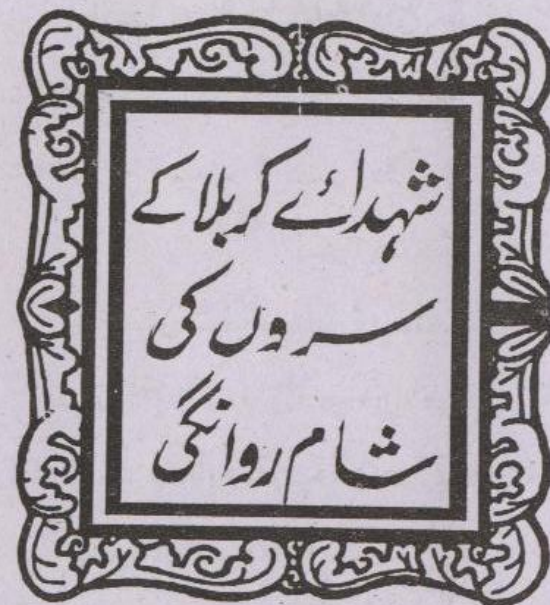 شہدائے کربلا کے
سروں کی
شام روانگی